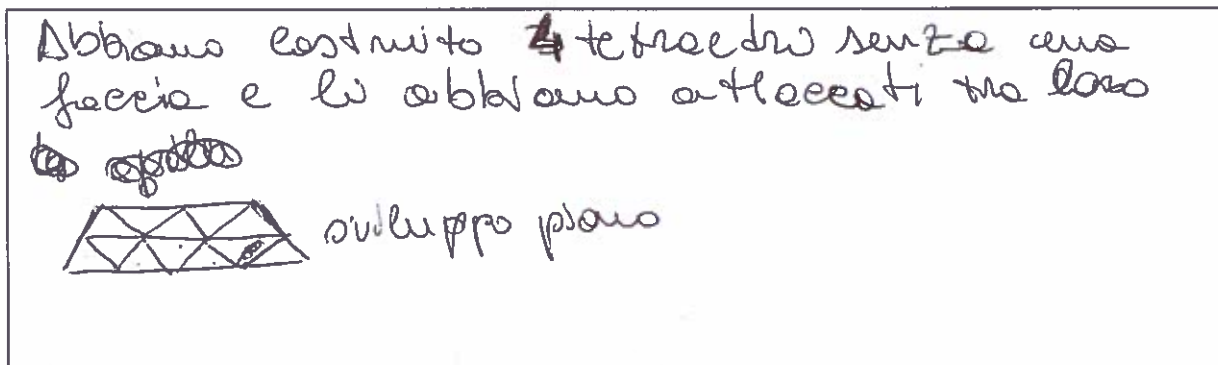 Abbiamo costruito 4 tetraedri senza una
faccia e li abbiamo attaccati tra loro
sviluppo piano